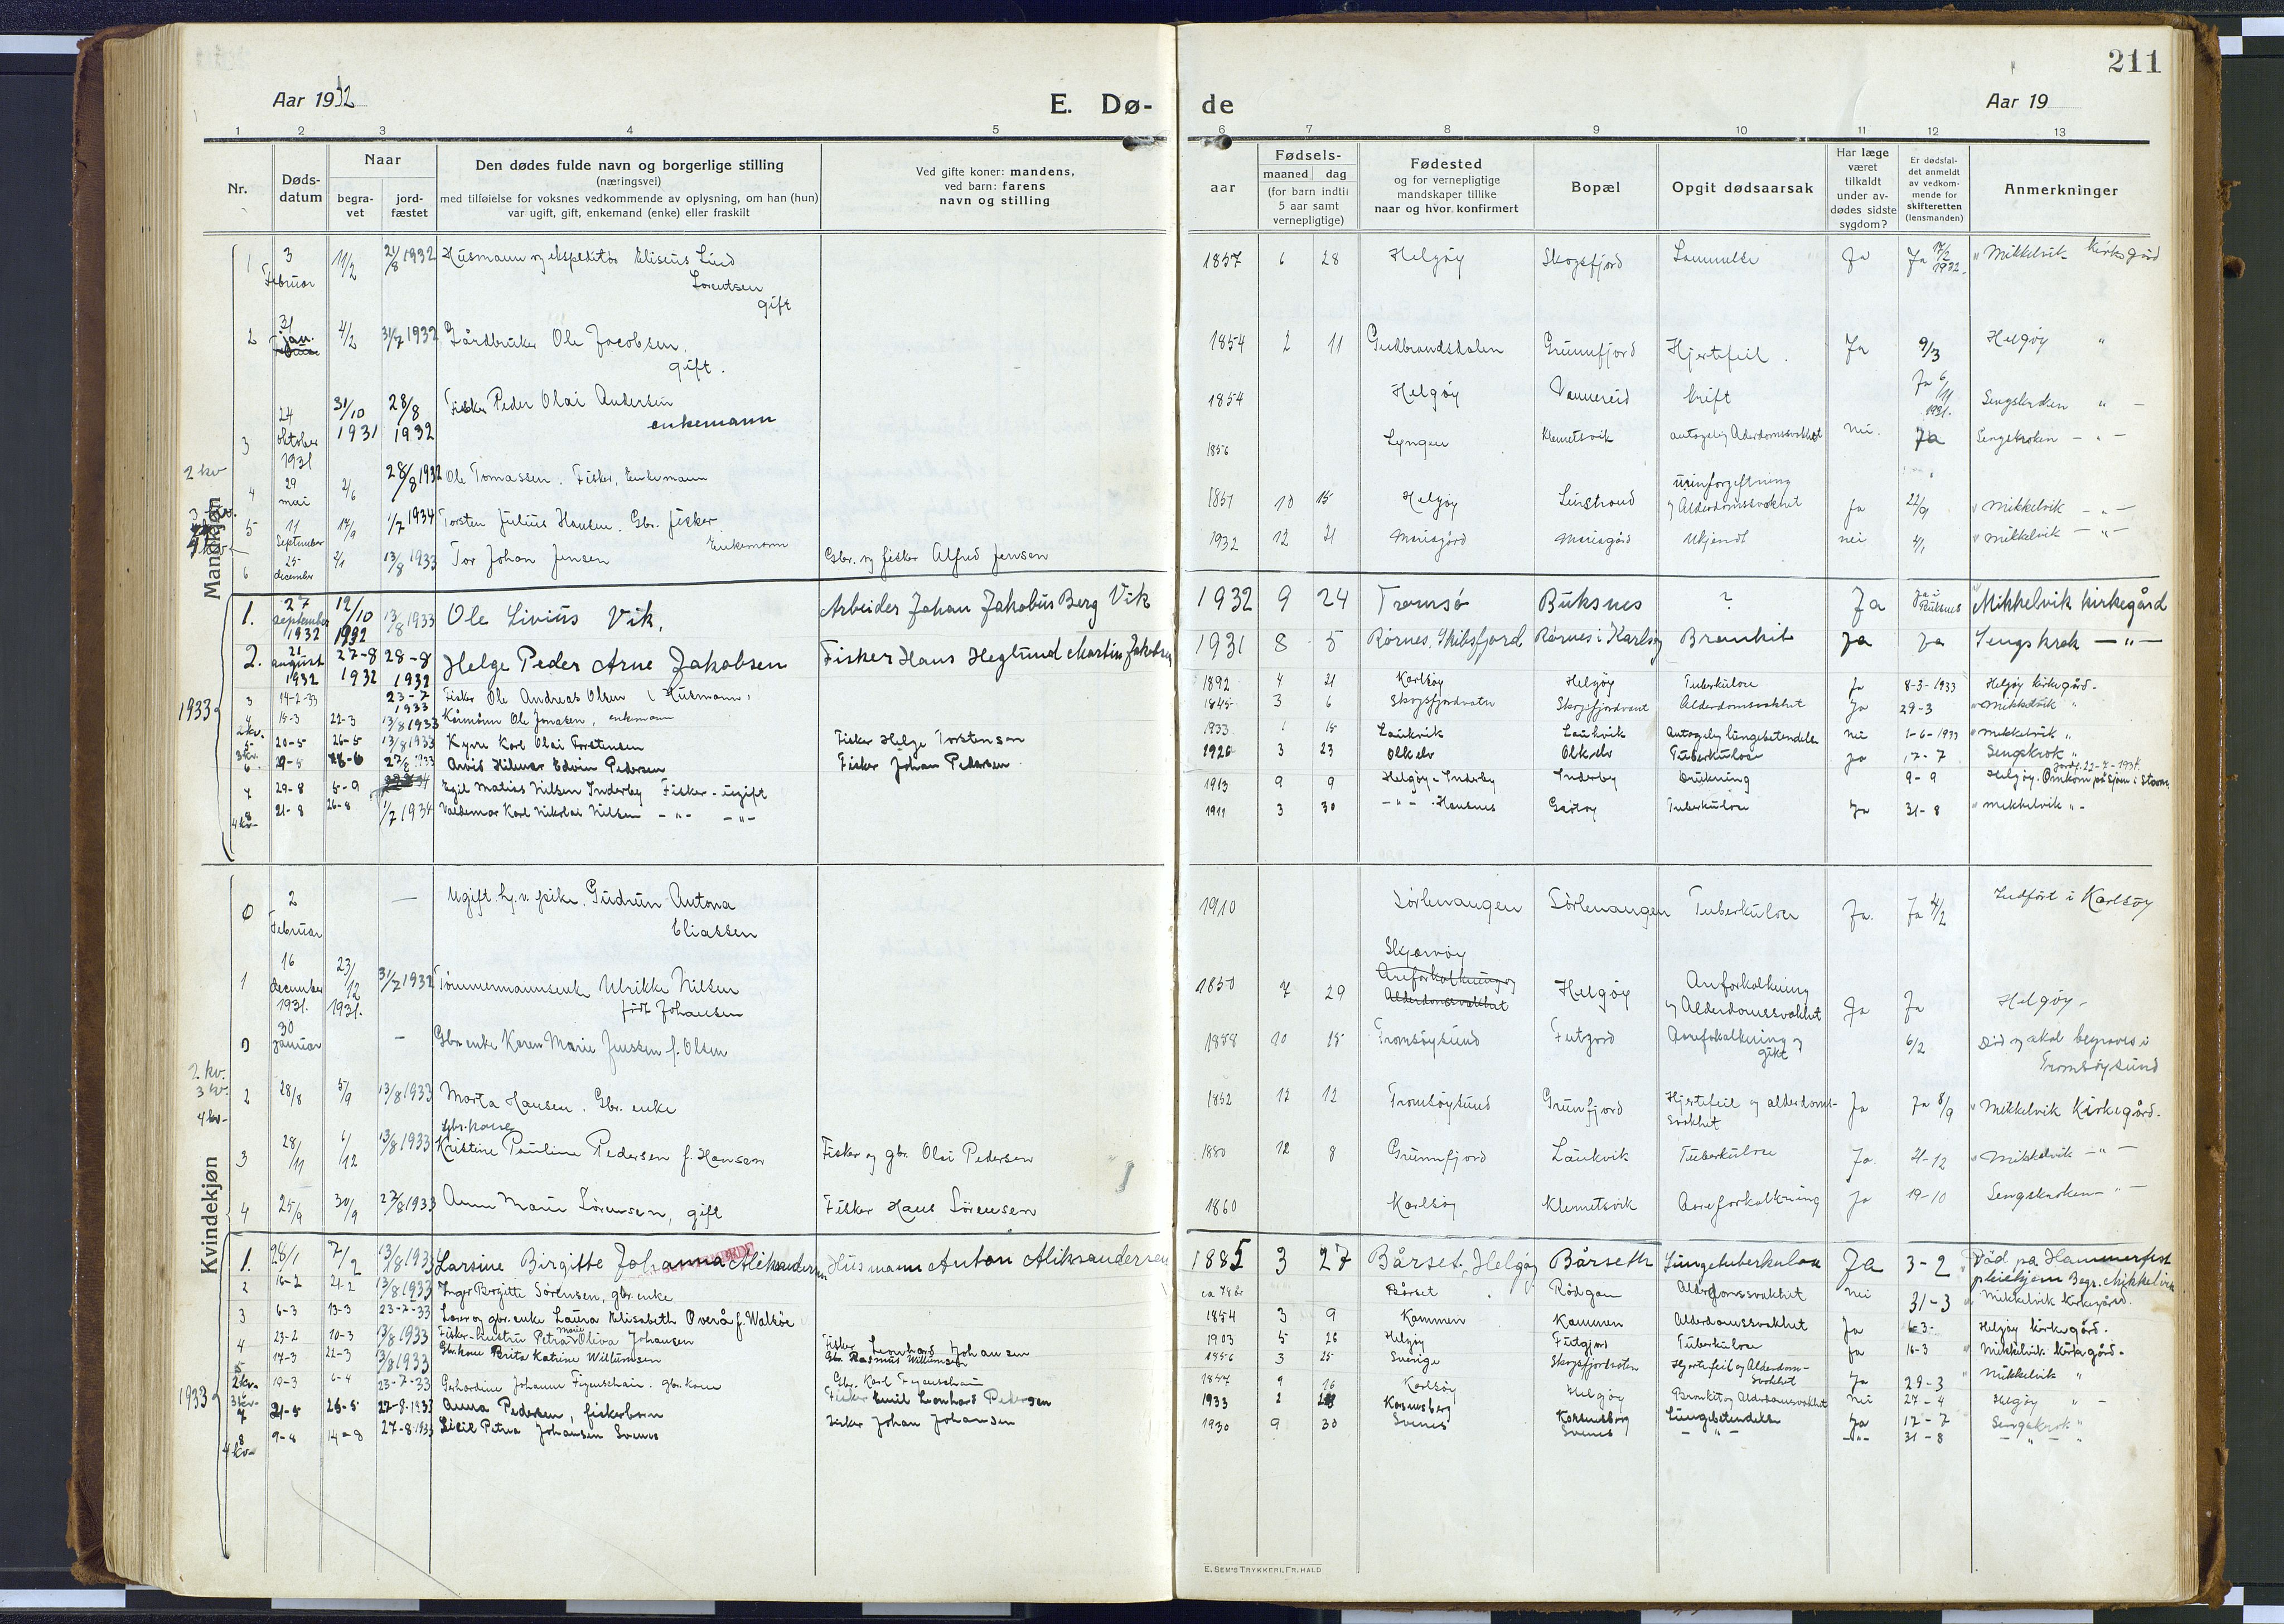 211
Aar 1932
E. Dø-
de
Aar 19
1 2 3 4 5 6 7 8 9 10 11 12 13
Nr.
Døds-
datum
Naar
begra-
vet
jord-
fæstet
Den dødes fulde navn og borgerlige stilling
(næringsvei)
med tilføielse for voksnes vedkommende av oplysning, om han (hun)
var ugift, gift, enkemand (enke) eller fraskilt
Ved gifte koner: mandens,
ved barn: farens
navn og stilling
aar
Fødsels-
maaned dag
(for barn indtil
5 aar samt
vernepligtige)
Fødested
og for vernepligtige
mandskaper tillike
naar og hvor konfirmert
Bopæl
Opgit dødsaarsak
Har læge
været
tilkaldt
under av-
dødes sidste
sygdom?
Er dødsfal-
det anmeldt
av vedkom-
mende for
skifteretten
(lensmanden)
Anmerkninger
Mandkjøn
1 3 Februar 11/2 21/8 1932 Husmann og ekspeditør Eliseus Lind Lorentsen gift 1857 6 28 Helgøy Skogsfjord Lammelse Ja Ja 17/2 1932. Mikkelvik Kirkegård
2 31 jan. 4/2 31/7 1932 Gårdbruker Ole Jacobsen gift. 1854 2 11 Gudbrandsdalen Grunnfjord Hjertefeil. Ja 9/3 Helgøy "
3 24 oktober 1931 31/10 1931 28/8 1932 Fisker Peder Olai Andersen enkemann 1854 Helgøy Vannereid Kreft Ja 6/11 1931. Sengskroken " -
2 kv
4 29 mai 2/6 28/8 1932 Ole Tomassen. Fisker, Enkemann 1856 Lyngen Klemetsvik antagelig Alderdomssvakhet nei. Ja Sengskroken - " -
3 kv.
5 11 September 17/9 1/7 1934 Torsten Julius Hansen. Gbr. fisker Enkemann 1851 10 15 Helgøy Linstrand urinforgiftning og Alderdomssvakhet Ja 22/9 Mikkelvik - " -
6 25 december 2/1 13/8 1933 Tor Johan Jensen Gbr. og fisker Alfred Jensen 1932 12 21 Mariagård Mariagård Ukjendt nei 4/1 Mikkelvik - " -
1933
1. 27 september 1932 12/10 1932 13/8 1933 Ole Livius Vik. Arbeider Johan Jakobus Berg Vik 1932 9 24 Tromsø Buksnes ? Ja Ja i Buksnes Mikkelvik kirkegård
2. 21 august 1932 27-8 1932 28-8 1932 Helge Peder Arne Jakobsen Fisker Hans Heglund Martin Jakobsen 1931 8 5 Rørnes, Skibsfjord Rørnes i Karlsøy Bronkit Ja Ja Sengskrok - " -
3 14-2-33 23-7 1933 Fisker Ole Andreas Olsen (Husmann) 1892 4 21 Karlsøy Helgøy Tuberkulose Ja 8-3-1933 Helgøy kirkegård.
4 15-3 22-3 13/8 1933 Kårmann Ole Jonasen, enkemann 1845 3 6 Skogsfjordvatn Skogsfjordvant Alderdomsvakhet Ja 29-3 Mikkelvik "
2 kv.
5 20-5 26-5 13/8 1933 Kyrre Karl Olai Torstensen Fisker Helge Torstensen 1933 1 15 Laukvik Laukvik Antagelig lungebetendelse nei 1-6-1933 Mikkelvik "
3 kv.
6 29-5 28-6 27/8 1933 Arvid Hilmar Edvin Pedersen Fisker Johan Pedersen 1926 3 23 Olkelv Olkelv Tuberkulose Ja 17-7 Sengskrok "
7 29-8 5-9 Egil Matius Nilsen Inderby Fisker - ugift 1913 9 9 Helgøy - Inderby Inderby Drukning 9-9 Helgøy. Omkom på sjøen i storm. jordf. 22-7-1934.
8 21-8 26-8 1/7 1934 Valdemar Karl Nikolai Nilsen - " - - " - 1911 3 30 - " - Hansnes Geitøy Tuberkulose Ja 31-8 Mikkelvik " -
4 kv-
Kvindekjøn
0 2 Februar — Ugift hj. v. pike. Gudrun Antona Eliassen 1910 Sørlenangen Sørlenangen Tuberkulose Ja. Ja 4/2 Indført i Karlsøy
1 16 december 1931. 23/12 1931. 31/7 1932 Tømmermannsenke Ulrikke Nilsen født Johansen 1850 7 29 Skjærvøy Areforkalkning og Alderdomssvakhet Helgøy Areforkalkning og Alderdomssvakhet Ja Ja Helgøy -
0 30 januar - Gbr. enke Karen Marie Jenssen f. Olsen 1858 10 15 Tromsøysund Futgord Aareforkalkning og gikt 6/2 Død og skal begraves i Tromsøysund
2 kv.
3 kv.
2 28/8 5/9 13/8 1933 Marta Hansen. Gbr. enke 1852 12 12 Tromsøysund Grunfjord Hjertefeil og alderdoms-svakhet Ja Ja 8/9 Mikkelvik Kirkegård.
4 kv-
3 28/11 6/12 13/8 1933 Gbr. kone Kristine Pauline Pedersen f. Hansen Fisker og gbr. Olai Pedersen 1880 12 8 Grunnfjord Laukvik Tuberkulose Ja. 21-12 Mikkelvik - " -
4 25/9 30/9 27/8 1933 Anne Marie Sørensen, gift Fisker Hans Sørensen 1860 Karlsøy Klemetsvik Aareforkalkning Ja 19-10 Sengskroken - " -
1933
1. 28/1 7/2 13/8 1933 Larsine Birgitte Johanna Aleksandersen Husmann Anton Aleksandersen 1885 3 27 Bårset, Helgøy Bårseth Lungetuberkulose Ja 3-2 Død på Hammerfest pleiehjem Begr. Mikkelvik
2 16-2 21-2 13/8 1933 Inger Birgitte Sørensen, gbr. enke ca 78 år Børset Rødgam Alderdomssvakhet nei 31-3 Mikkelvik kirkegård.
3 6-3 13-3 23-7-33 Løser og gbr. enke Laura Elisabeth Overå f. Walsøe 1854 3 9 Kammen Kammen Alderdomssvakhet Ja 6-3- Helgøy kirkegård.
4 23-2 10-3 13/8 1933 Fisker-hustru Petra Marie Oliva Johansen Fisker Leonhard Johansen 1903 5 26 Helgøy Futgjord Tuberkulose Ja 16-3 Mikkelvik kirkegård.
5 14-3 22-3 13/8 1933 Gbr. kone Brita Katrine Willumsen Gbr. Rasmus Willumsen 1856 3 25 Sverige Skogsfjordvaten Hjertefeil og Alderdom-svakhet Ja 29-3 Mikkelvik "
2 kv-
19-3 6-4 23-7-33 Gerhardine Johanne Figenschau. gbr. kone Gbr. Karl Figenschau 1857 9 16 Karlsøy Helgøy Bronkit og Alderdomsvakhet nei 27-4 Helgøy " -
3 kv-
7 21-5 26-5 27-8-1933 Anna Pedersen, fiskerbarn Fisker Emil Leonhard Pedersen 1933 2 Korsnesberg Lungebetendelse Ja 17-7 Sengskrok "
8 9-8 14-8 27-8-1933 Sicil Petrea Johansen Svenes Fisker Johan Johansen 1930 9 30 Svenes Svenes - " - - " - 31-8 - " - "
4 kv-
E. SEM'S TRYKKERI, FR.HALD